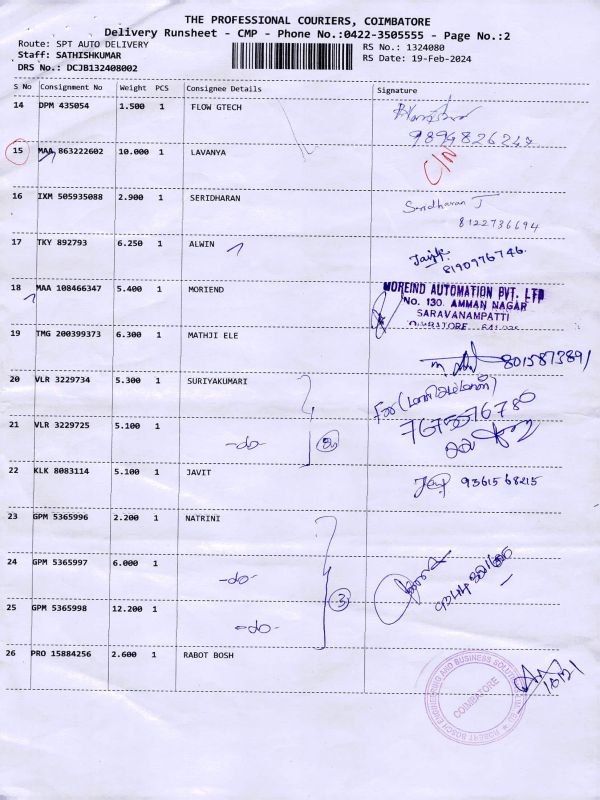 THE PROFESSIONAL COURIERS, COIMBATORE
Delivery Runsheet - CMP - Phone No.:0422-3505555 - Page No.:2
Route: SPT AUTO DELIVERY
RS No.: 1324080
Staff: SATHISHKUMAR
RS Date: 19-Feb-2024
DRS No.: DCJB132408002
S No Consignment No Weight PCS Consignee Details Signature
14 DPM 435054 1.500 1 FLOW GTECH
9894826247
15 MAA 863222602 10.000 1 LAVANYA C/N
16 IXM 505935088 2.900 1 SERIDHARAN Seridharan J
8122736694
17 TKY 892793 6.250 1 ALWIN
8190976746.
18 MAA 108466347 5.400 1 MORIEND MOREIND AUTOMATION PVT. LTD
No. 130. AMMAN NAGAR
SARAVANAMPATTI
19 TMG 200399373 6.300 1 MATHJI ELE 8015873891
20 VLR 3229734 5.300 1 SURIYAKUMARI
21 VLR 3229725 5.100 1 -do- 2
22 KLK 8083114 5.100 1 JAVIT 9361568215
23 GPM 5365996 2.200 1 NATRINI
24 GPM 5365997 6.000 1 -do-
3
25 GPM 5365998 12.200 1 -do-
26 PRO 15884256 2.600 1 RABOT BOSH
COIMBATORE